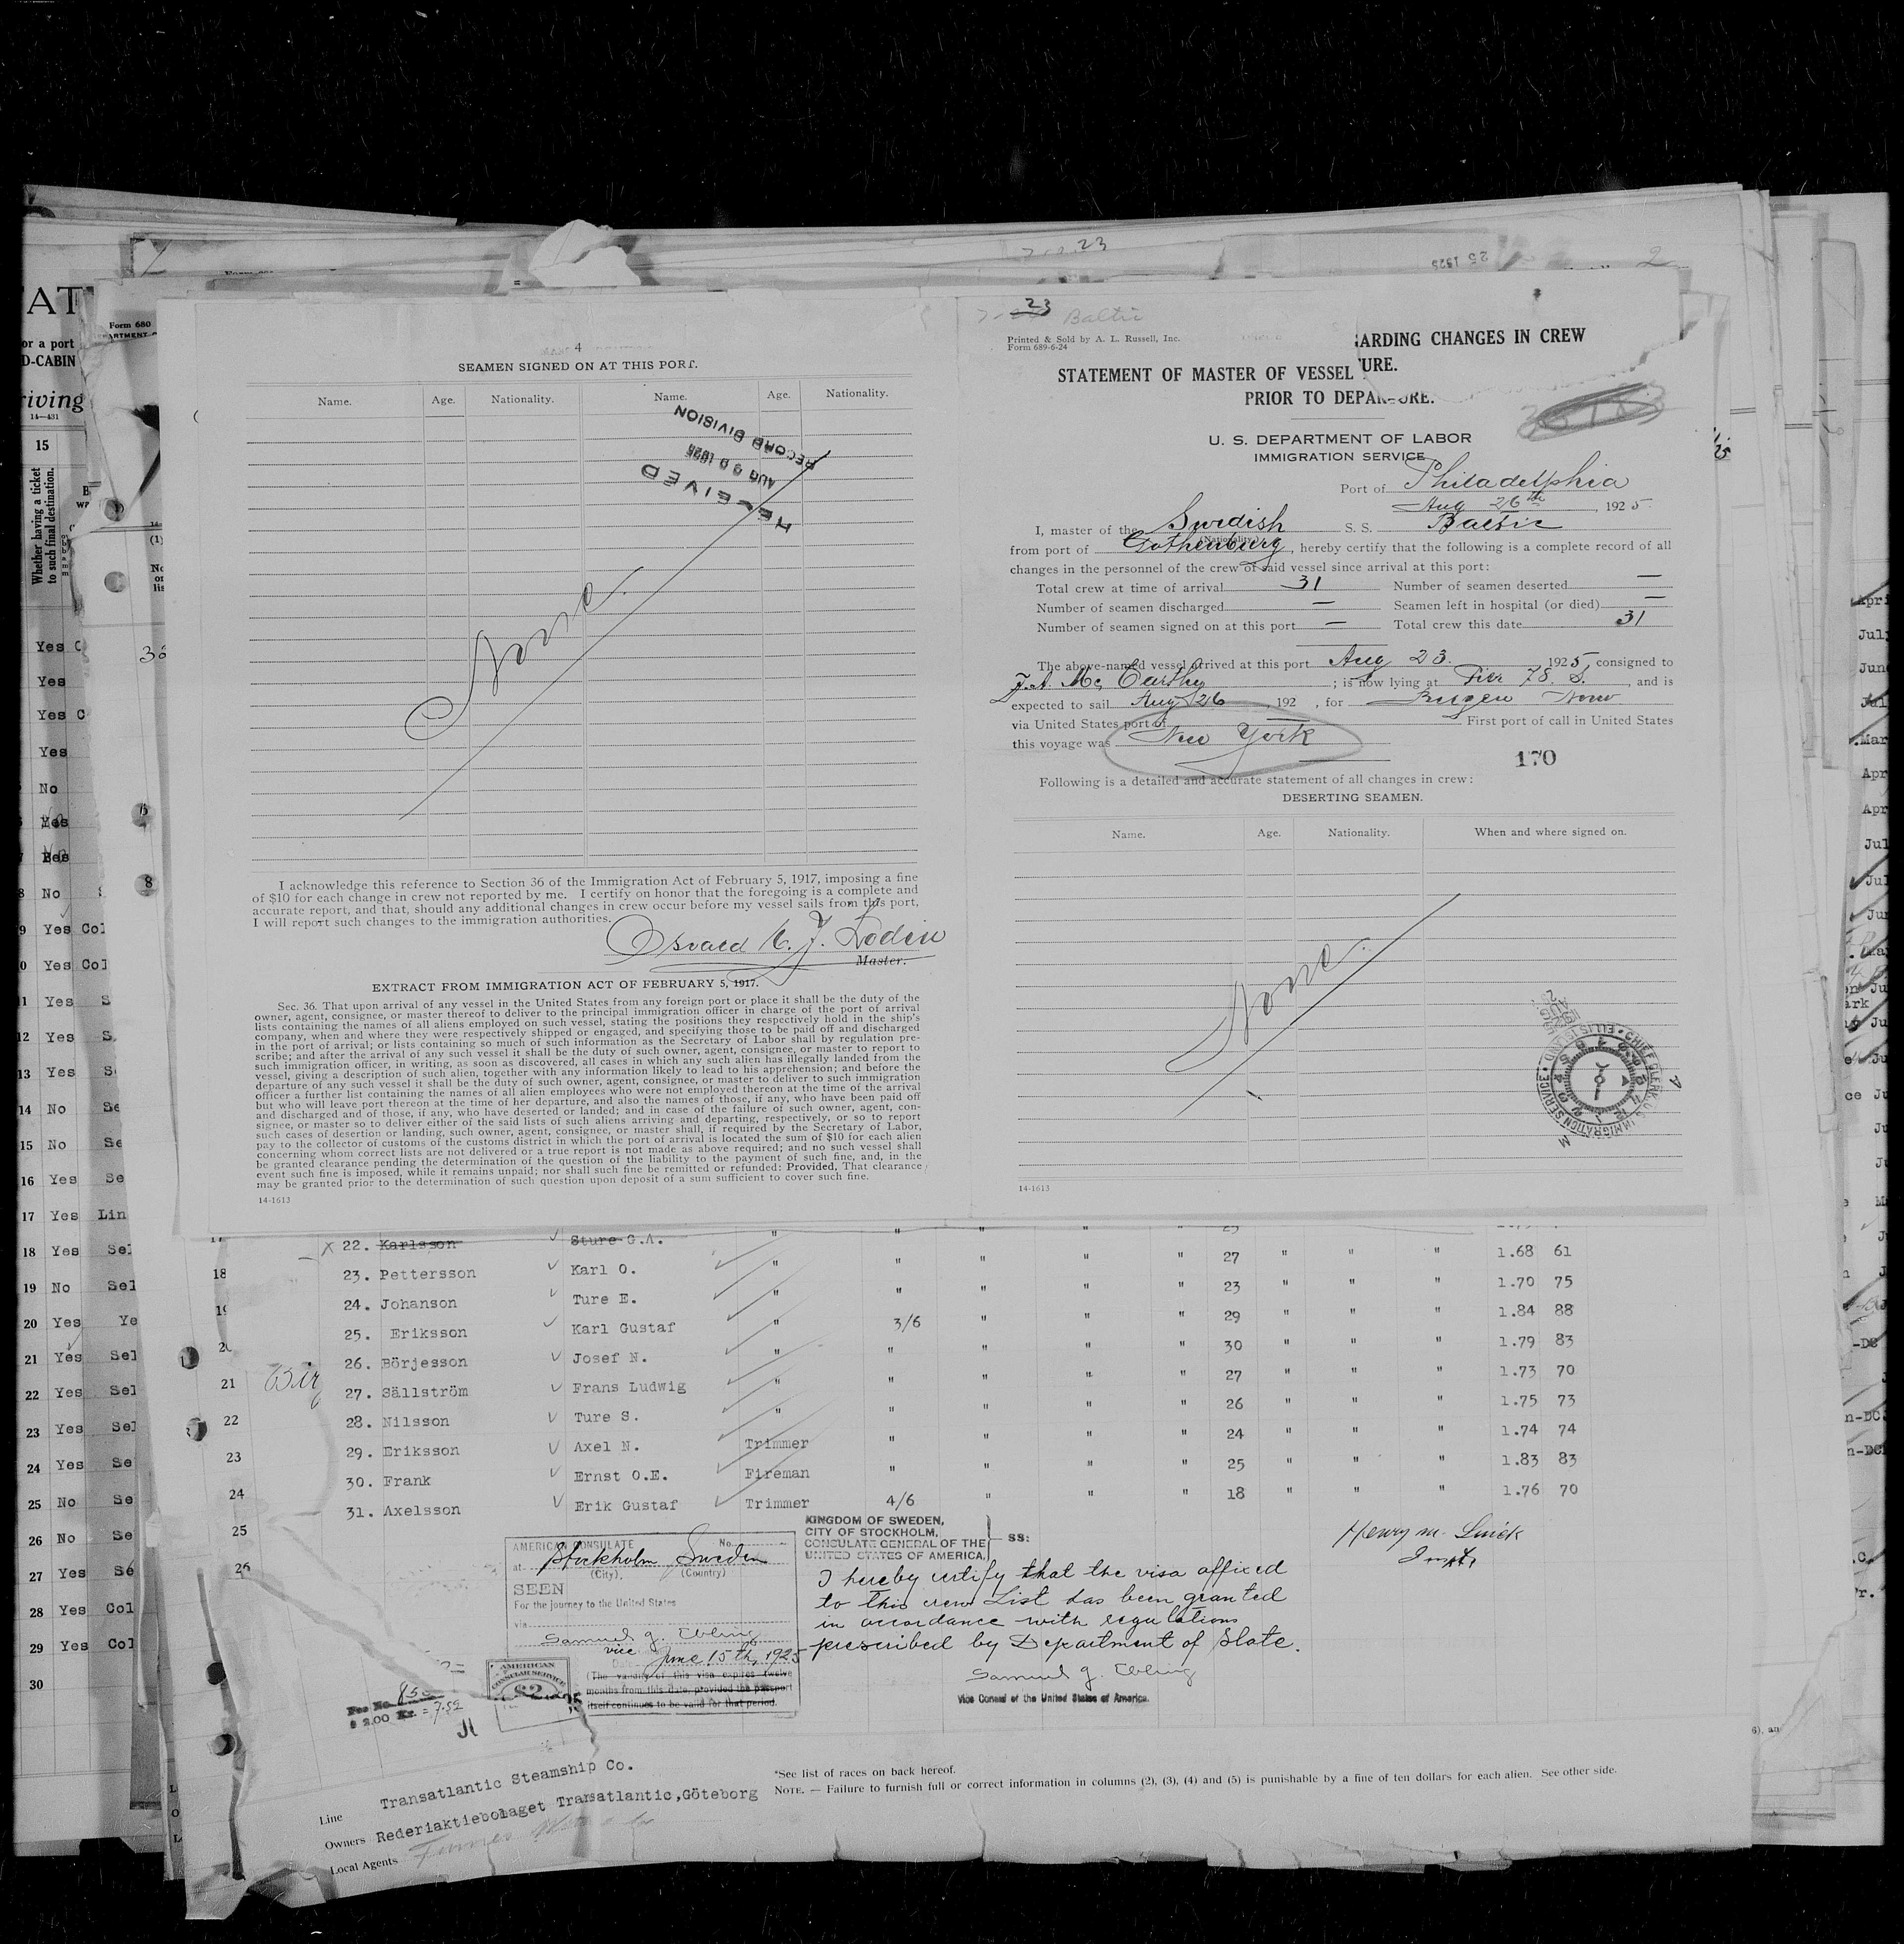 23
25 1925
2
AT
Form 680
or a port
D-CABIN
riving
14-431
15
Whether having a ticket
to such final destination.
Yes C
Yes
Yes C
Yes
No
Yes
8 No
9 Yes Col
0 Yes Col
1 Yes S
12 Yes S
13 Yes S
14 No Se
15 No Se
16 Yes Se
17 Yes Lin
18 Yes Sel
19 No Sel
20 Yes Ye
21 Yes Sel
22 Yes Sel
23 Yes Sel
24 Yes Se
25 No Se
26 No Se
27 Yes Sé
28 Yes Col
29 Yes Col
30
4
SEAMEN SIGNED ON AT THIS PORT.
Name. Age. Nationality. Name. Age. Nationality.
RECEIVED
AUG 29 1925
RECORD DIVISION
None.
I acknowledge this reference to Section 36 of the Immigration Act of February 5, 1917, imposing a fine
of $10 for each change in crew not reported by me. I certify on honor that the foregoing is a complete and
accurate report, and that, should any additional changes in crew occur before my vessel sails from this port,
I will report such changes to the immigration authorities.
Osvald K. J. Lodin
Master.
EXTRACT FROM IMMIGRATION ACT OF FEBRUARY 5, 1917.
Sec. 36. That upon arrival of any vessel in the United States from any foreign port or place it shall be the duty of the
owner, agent, consignee, or master thereof to deliver to the principal immigration officer in charge of the port of arrival
lists containing the names of all aliens employed on such vessel, stating the positions they respectively hold in the ship's
company, when and where they were respectively shipped or engaged, and specifying those to be paid off and discharged
in the port of arrival; or lists containing so much of such information as the Secretary of Labor shall by regulation pre-
scribe; and after the arrival of any such vessel it shall be the duty of such owner, agent, consignee, or master to report to
such immigration officer, in writing, as soon as discovered, all cases in which any such alien has illegally landed from the
vessel, giving a description of such alien, together with any information likely to lead to his apprehension; and before the
departure of any such vessel it shall be the duty of such owner, agent, consignee, or master to deliver to such immigration
officer a further list containing the names of all alien employees who were not employed thereon at the time of the arrival
but who will leave port thereon at the time of her departure, and also the names of those, if any, who have been paid off
and discharged and of those, if any, who have deserted or landed; and in case of the failure of such owner, agent, con-
signee, or master so to deliver either of the said lists of such aliens arriving and departing, respectively, or so to report
such cases of desertion or landing, such owner, agent, consignee, or master shall, if required by the Secretary of Labor,
pay to the collector of customs of the customs district in which the port of arrival is located the sum of $10 for each alien
concerning whom correct lists are not delivered or a true report is not made as above required; and no such vessel shall
be granted clearance pending the determination of the question of the liability to the payment of such fine, and, in the
event such fine is imposed, while it remains unpaid; nor shall such fine be remitted or refunded: Provided, That clearance
may be granted prior to the determination of such question upon deposit of a sum sufficient to cover such fine.
14-1613
23 Baltic
Printed & Sold by A. L. Russell, Inc.
Form 689-6-24
ARDING CHANGES IN CREW
URE.
STATEMENT OF MASTER OF VESSEL
PRIOR TO DEPARTURE.
U. S. DEPARTMENT OF LABOR
IMMIGRATION SERVICE
Port of Philadelphia
Aug 26th, 1925
I, master of the Swedish S. S. Baltic
(Nationality.)
from port of Gothenburg, hereby certify that the following is a complete record of all
changes in the personnel of the crew of said vessel since arrival at this port:
Total crew at time of arrival 31 Number of seamen deserted —
Number of seamen discharged — Seamen left in hospital (or died) —
Number of seamen signed on at this port — Total crew this date 31
The above-named vessel arrived at this port Aug 23. 1925, consigned to
J. A. Mc Carthy; is now lying at Pier 78. S., and is
expected to sail Aug 26, 192 , for
via United States port of First port of call in United States
this voyage was New York
170
Following is a detailed and accurate statement of all changes in crew:
DESERTING SEAMEN.
Name. Age. Nationality. When and where signed on.
None.
CHIEF CLERK U.S. IMMIGRATION SERVICE • ELLIS ISLAND
14-1613
22. Karlsson Sture G.A. " " " " " 27 " " " 1.68 61
23. Pettersson Karl O. " " " " " 23 " " " 1.70 75
24. Johanson Ture E. " " " " 29 " " " 1.84 88
25. Eriksson Karl Gustaf " 3/6 " " " 30 " " " 1.79 83
26. Börjesson Josef N. " " " " " 27 " " " 1.73 70
27. Sällström Frans Ludwig " " " " " 26 " " " 1.75 73
28. Nilsson Ture S. " " " " " 24 " " " 1.74 74
29. Eriksson Axel N. Trimmer " " " " 25 " " " 1.83 83
30. Frank Ernst O.E. Fireman " " " " 18 " " " 1.76 70
31. Axelsson Erik Gustaf Trimmer 4/6
AMERICAN CONSULATE No.
at Stockholm Sweden
(City). (Country)
SEEN
For the journey to the United States
via
Samuel G. Ebling
vice
Date June 15th, 1925
(The validity of this visa expires twelve
months from this date, provided the passport
itself continues to be valid for that period.
AMERICAN
CONSULAR SERVICE
$2
Fee No. 850
$ 2.00 Kr. = 7.52
KINGDOM OF SWEDEN,
CITY OF STOCKHOLM,
CONSULATE GENERAL OF THE
UNITED STATES OF AMERICA,
SS:
I hereby certify that the visa affixed
to this crew List has been granted
in accordance with regulations
prescribed by Department of State.
Samuel G. Ebling
Vice Consul of the United States of America.
Line Transatlantic Steamship Co.
Owners Rederiaktiebolaget Transatlantic,Göteborg
Local Agents
*See list of races on back hereof.
NOTE. — Failure to furnish full or correct information in columns (2), (3), (4) and (5) is punishable by a fine of ten dollars for each alien. See other side.